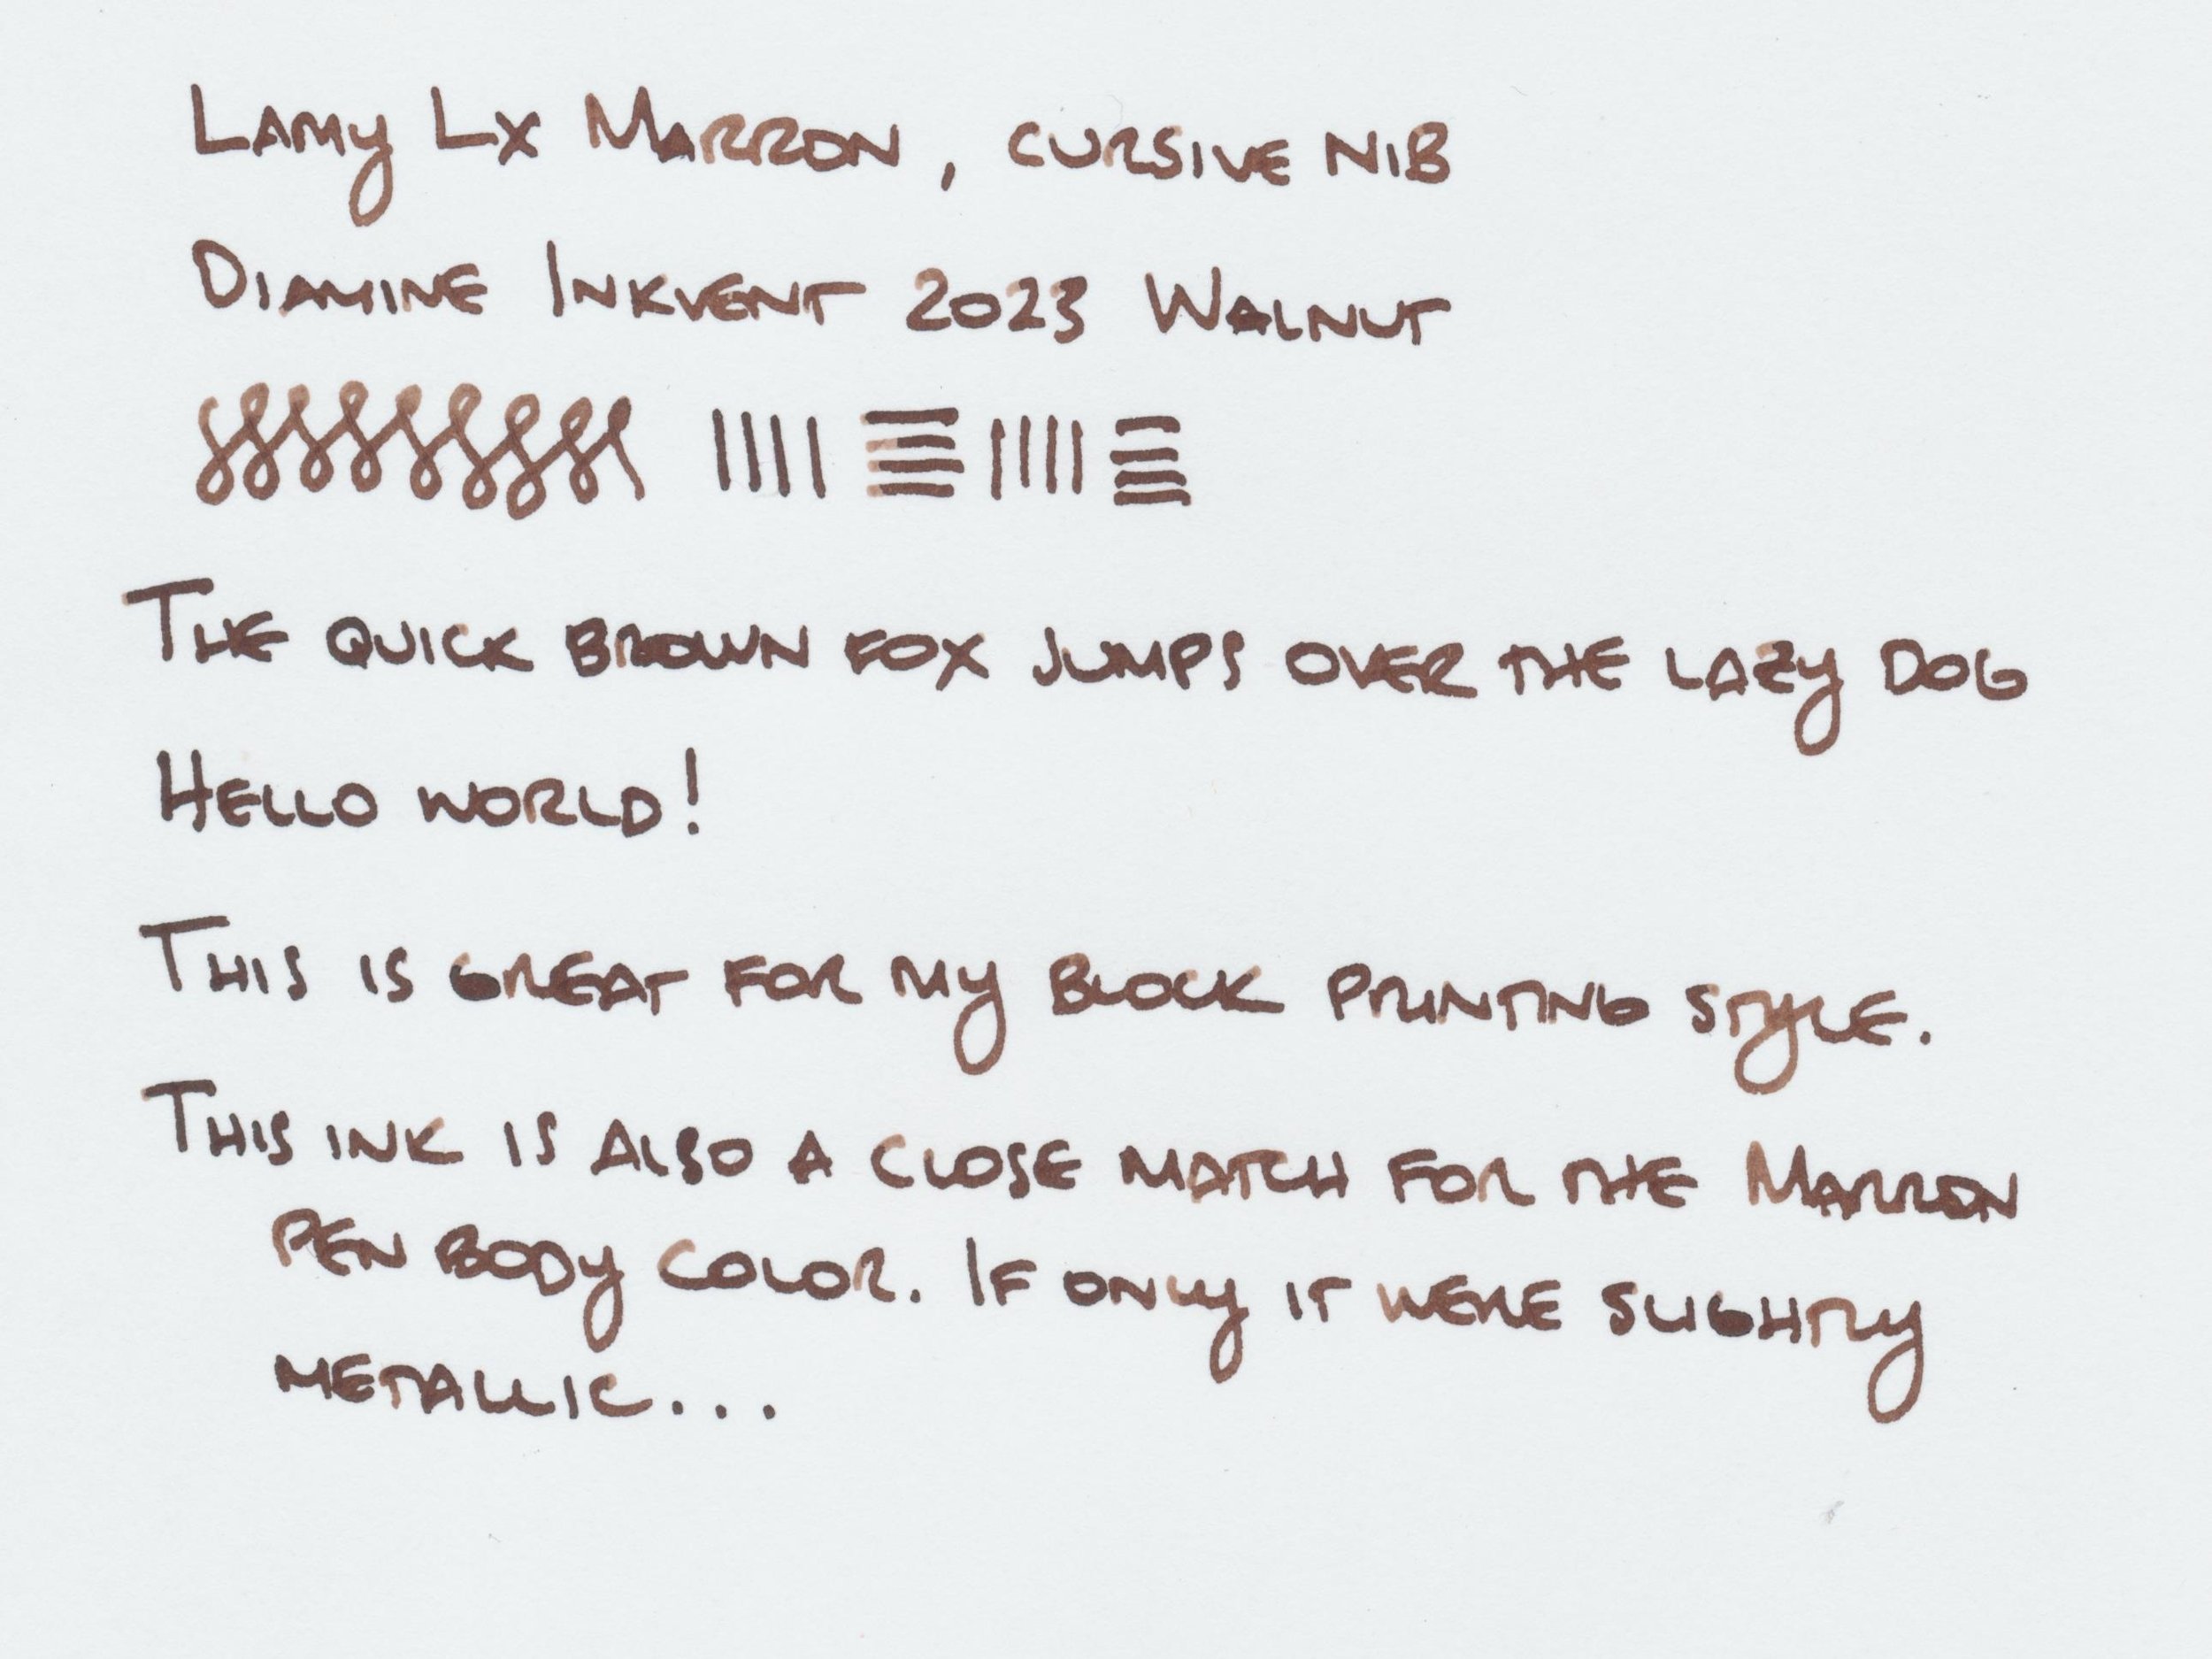 Lamy Lx Marron, cursive nib
Diamine Inkvent 2023 Walnut
The quick brown fox jumps over the lazy dog
Hello world!
This is great for my block printing style.
This ink is also a close match for the Marron
pen body color. If only it were slightly
metallic...